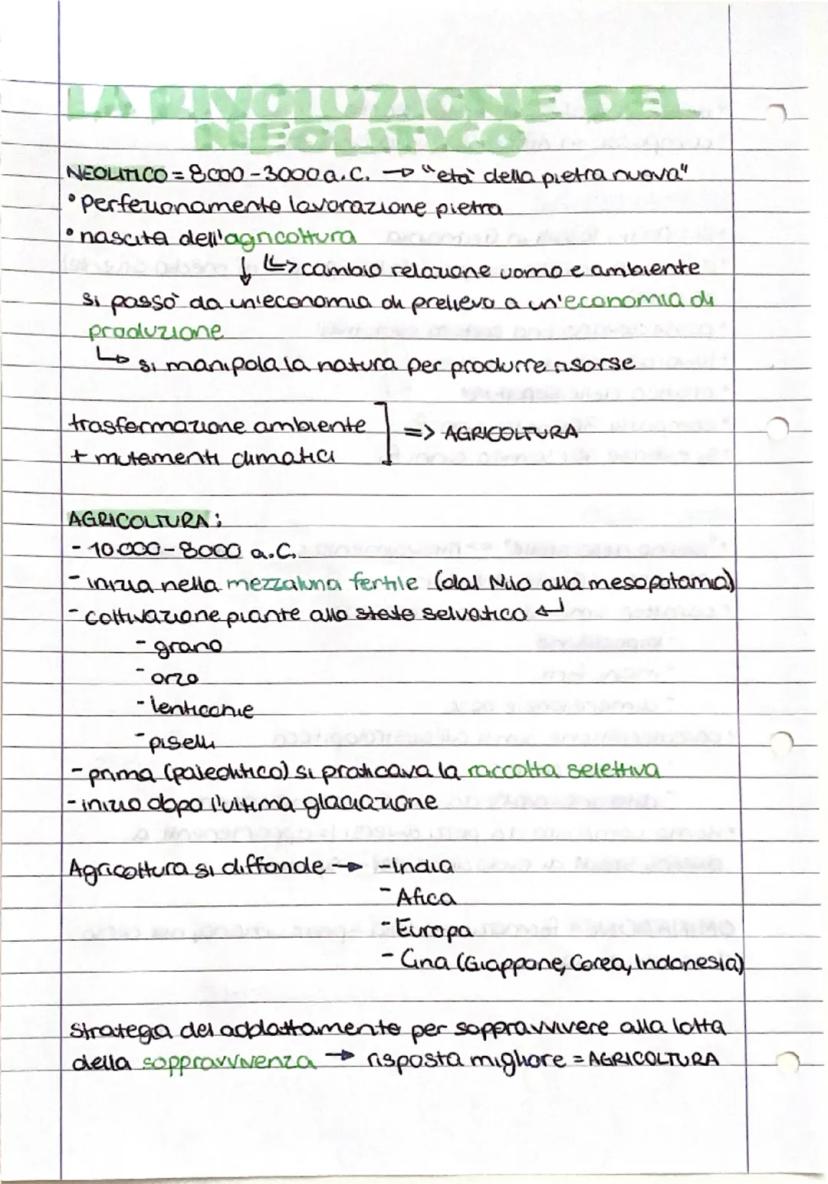 LA RIVOLUZIONE DEL
NEOLITICO
NEOLITICO = 8000-3000 a.C. → "età della pietra nuova"
• perfezionamento lavorazione pietra
• nascita dell'agricoltura
↓ ↳> cambio relazione uomo e ambiente
si passò da un'economia di prelievo a un'economia di
produzione
↳ si manipola la natura per produrre risorse
trasformazione ambiente
+ mutamenti climatici ] => AGRICOLTURA
AGRICOLTURA:
- 10000-8000 a.C.
- inizia nella mezzaluna fertile (dal Nilo alla mesopotamia)
- coltivazione piante allo stato selvatico ↵
- grano
- orzo
- lenticchie
- piselli
- prima (paleolitico) si praticava la raccolta selettiva
- inizio dopo l'ultima glaciazione
Agricoltura si diffonde → - India
- Afica
- Europa
- Cina (Giappone, Corea, Indonesia)
Stratega del addattamento per soppravvivere alla lotta
della soppravvivenza → risposta migliore = AGRICOLTURA